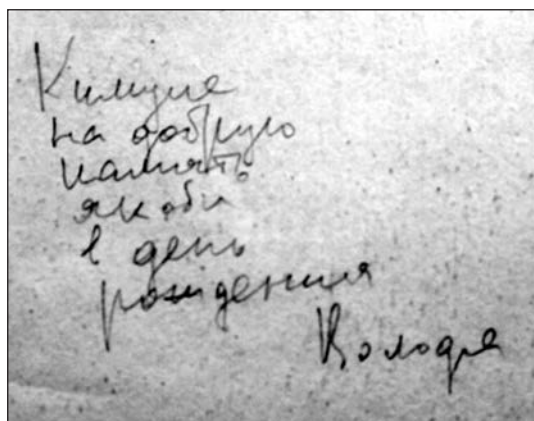 Кимуле
на добрую
память
якобы
в день
рождения
Володя